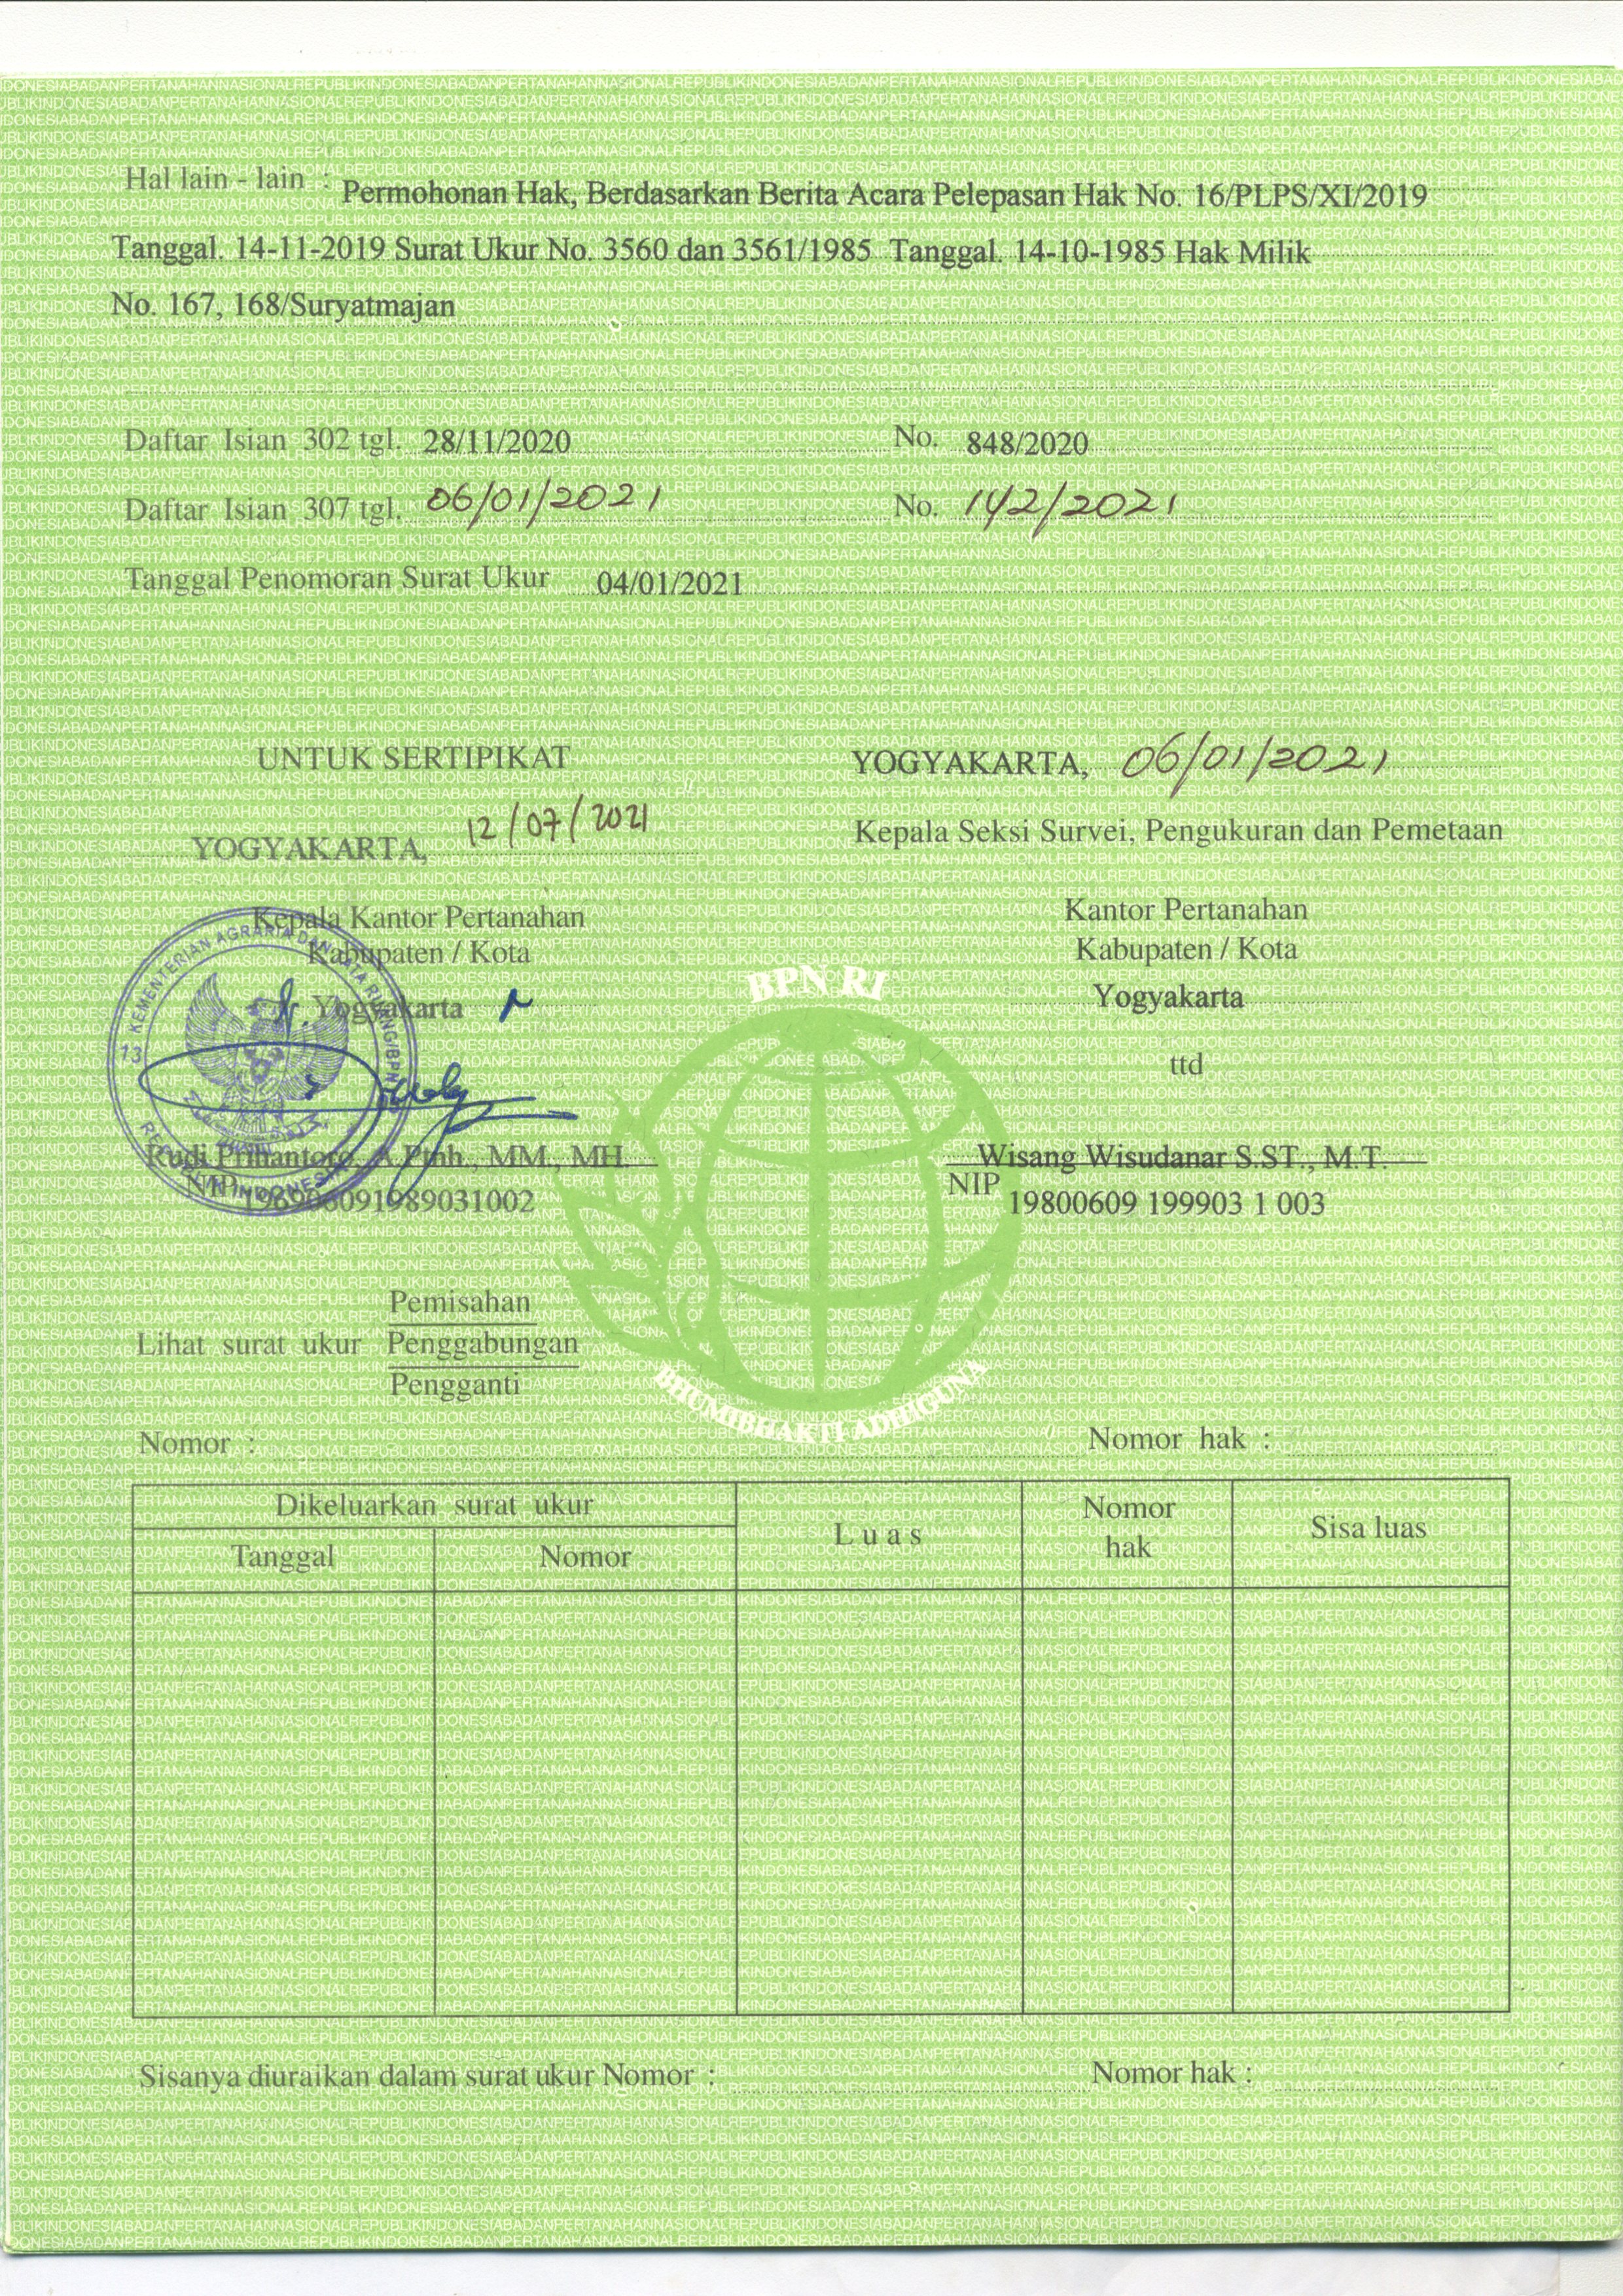 Hal lain - lain : Permohonan Hak, Berdasarkan Berita Acara Pelepasan Hak No. 16/PLPS/XI/2019
Tanggal. 14-11-2019 Surat Ukur No. 3560 dan 3561/1985 Tanggal. 14-10-1985 Hak Milik
No. 167, 168/Suryatmajan
Daftar Isian 302 tgl. 28/11/2020 No. 848/2020
Daftar Isian 307 tgl. 06/01/2021 No. 142/2021
Tanggal Penomoran Surat Ukur 04/01/2021
UNTUK SERTIPIKAT
YOGYAKARTA, 12/07/2021
Kepala Kantor Pertanahan
Kabupaten / Kota
Yogyakarta
Rudi Prihantoro, A.Ptnh., MM., MH.
NIP 196906091989031002
YOGYAKARTA, 06/01/2021
Kepala Seksi Survei, Pengukuran dan Pemetaan
Kantor Pertanahan
Kabupaten / Kota
Yogyakarta
ttd
Wisang Wisudanar S.ST., M.T.
NIP 19800609 199903 1 003
KEMENTERIAN AGRARIA DAN TATA RUANG/BPN
13
REPUBLIK INDONESIA
BPN RI
BHUMIBHAKTI ADHIGUNA
Pemisahan
Lihat surat ukur Penggabungan
Pengganti
Nomor : Nomor hak :
Dikeluarkan surat ukur
Tanggal Nomor
Luas
Nomor
hak
Sisa luas
Sisanya diuraikan dalam surat ukur Nomor : Nomor hak :